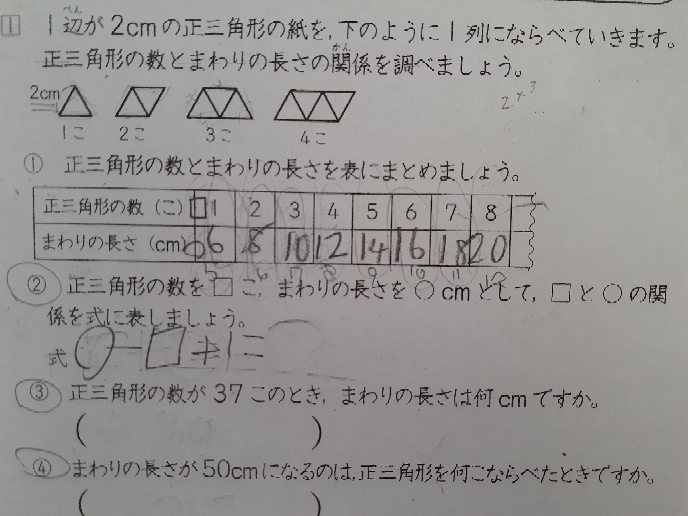 1 1辺が2cmの正三角形の紙を,下のように1列にならべていきます。
正三角形の数とまわりの長さの関係を調べましょう。
2cm
1こ 2こ 3こ 4こ
① 正三角形の数とまわりの長さを表にまとめましょう。
正三角形の数(こ) □ 1 2 3 4 5 6 7 8
まわりの長さ(cm) ○ 6 8 10 12 14 16 18 20
② 正三角形の数を□こ,まわりの長さを○cmとして,□と○の関
係を式に表しましょう。
式 ○-□
③ 正三角形の数が37このとき,まわりの長さは何cmですか。
( )
④ まわりの長さが50cmになるのは,正三角形を何こならべたときですか。
( )